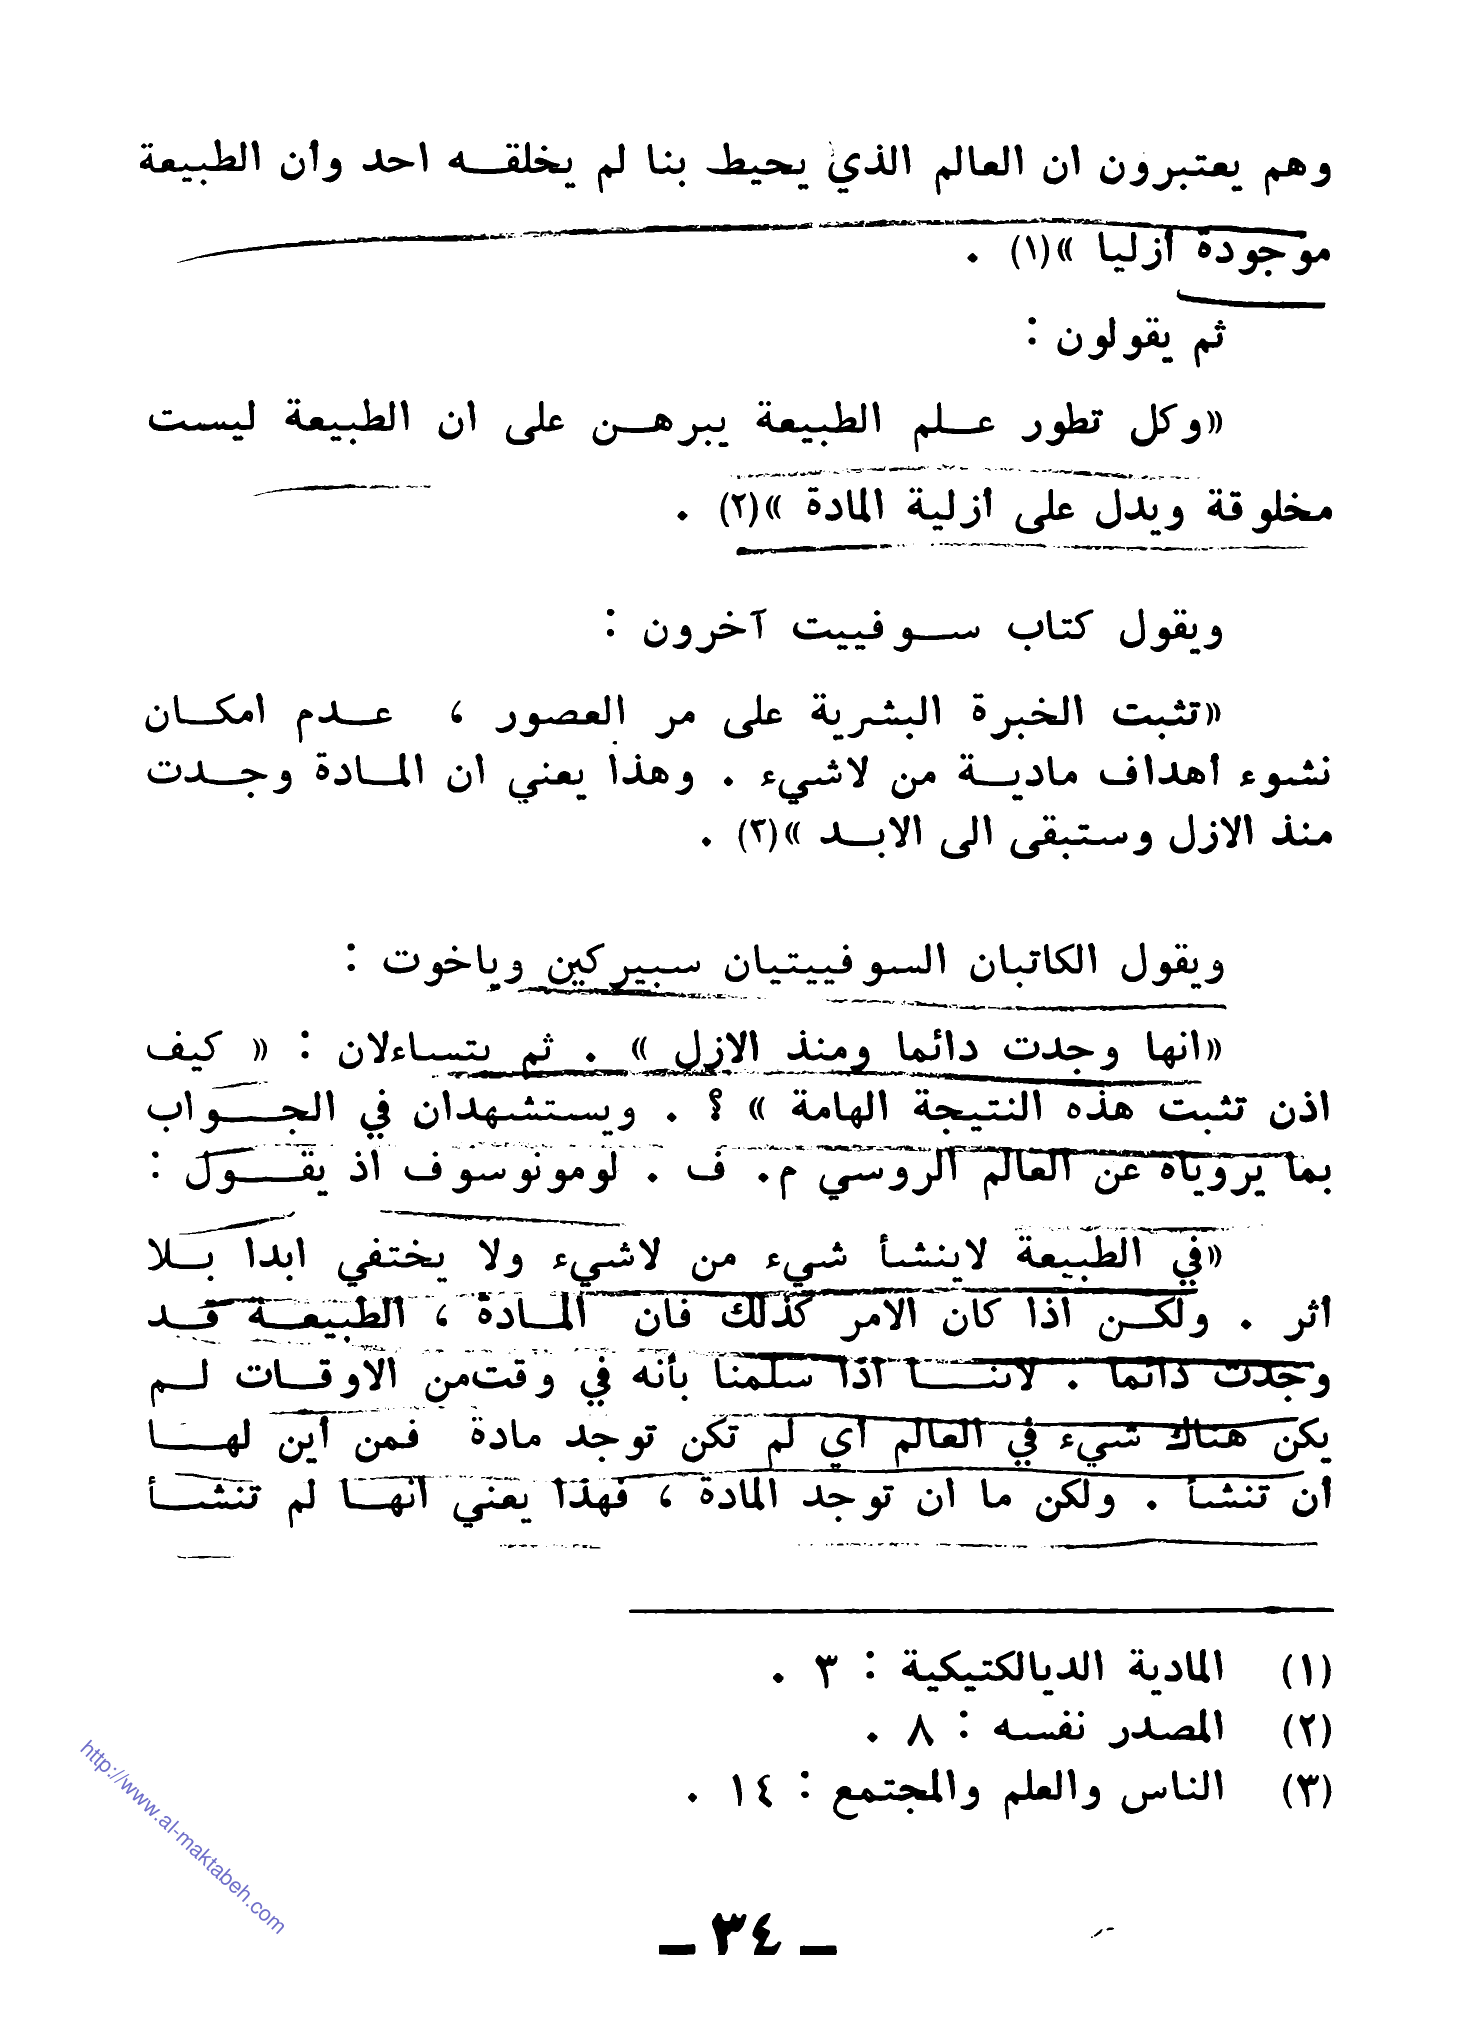 وهم يعتبرون ان العالم الذي يحيط بنا لم يخلقه احد وأن الطبيعة
موجودة أزليا »(١) .
ثم يقولون :
«وكل تطور علم الطبيعة يبرهن على ان الطبيعة ليست
مخلوقة ويدل على أزلية المادة »(٢) .
ويقول كتاب سوفييت آخرون :
«تثبت الخبرة البشرية على مر العصور ، عدم امكان
نشوء أهداف مادية من لاشيء . وهذا يعني ان المادة وجدت
منذ الازل وستبقى الى الابد »(٣) .
ويقول الكاتبان السوفييتيان سبيركين وياخوت :
«انها وجدت دائما ومنذ الازل » . ثم يتساءلان : « كيف
اذن تثبت هذه النتيجة الهامة » ؟ . ويستشهدان في الجواب
بما يرويانه عن العالم الروسي م. ف . لومونوسوف اذ يقول :
«في الطبيعة لاينشأ شيء من لاشيء ولا يختفي ابدا بلا
أثر . ولكن اذا كان الامر كذلك فان المادة ، الطبيعة قد
وجدت دائما . لاننا اذا سلمنا بأنه في وقت من الاوقات لم
يكن هناك شيء في العالم أي لم تكن توجد مادة فمن أين لها
أن تنشأ . ولكن ما ان توجد المادة ، فهذا يعني انها لم تنشأ
(١) المادية الديالكتيكية : ٣ .
(٢) المصدر نفسه : ٨ .
(٣) الناس والعلم والمجتمع : ١٤ .
ـ ٣٤ ـ
http://www.al-maktabeh.com